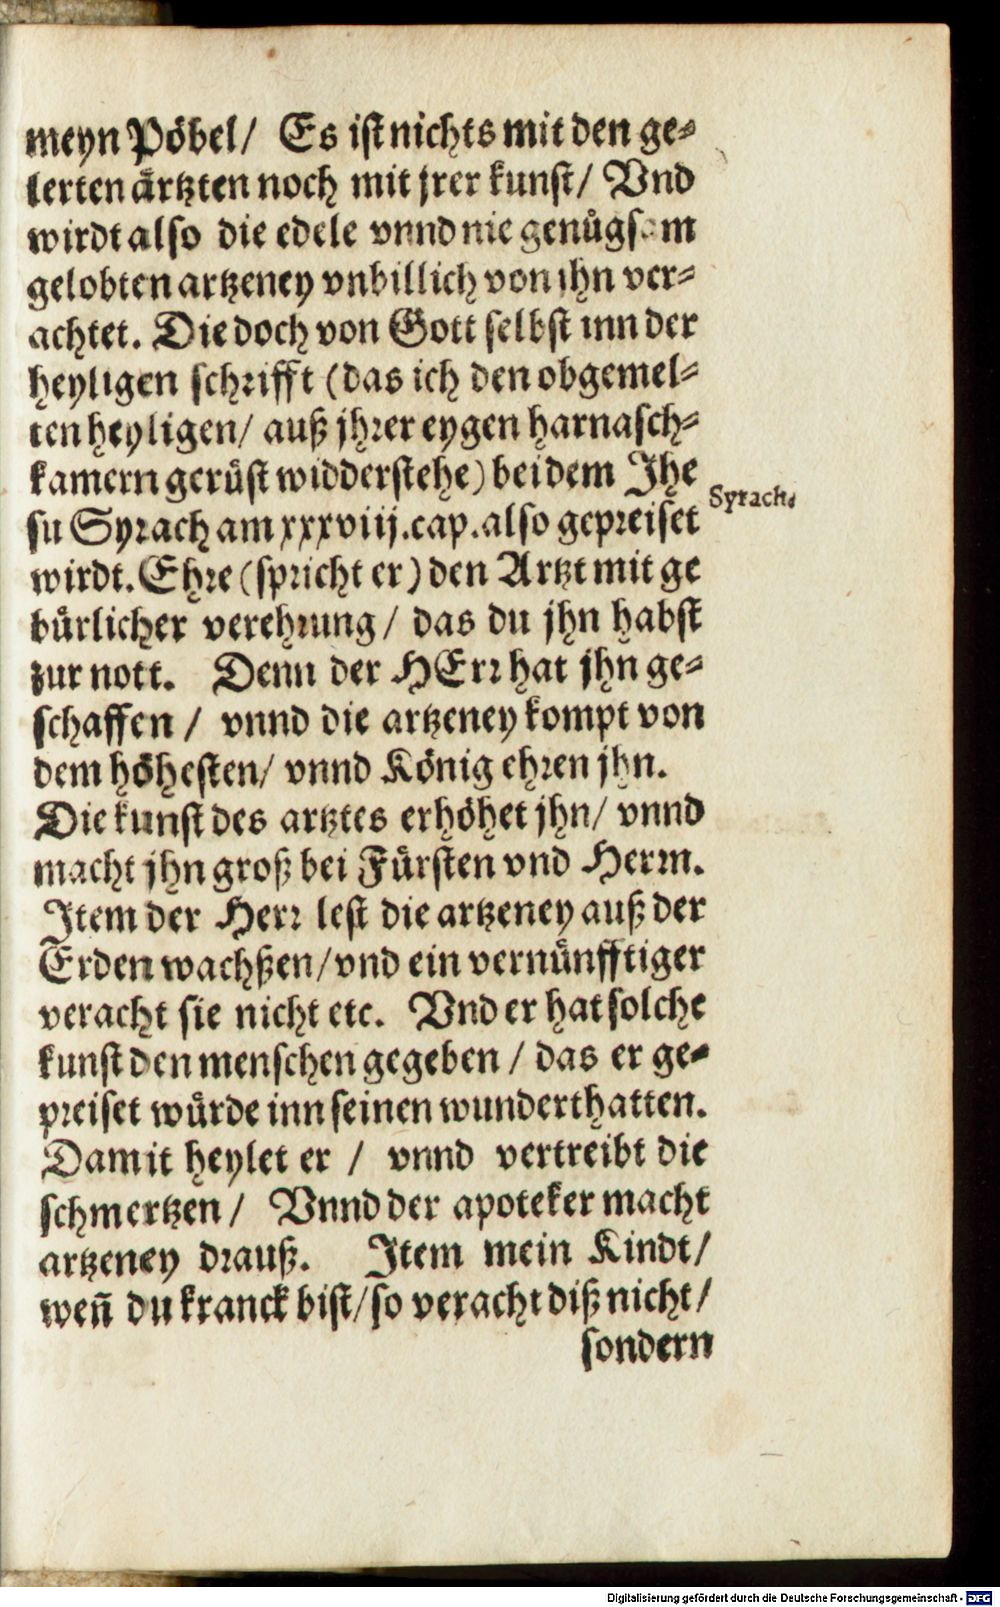 meyn Pöbel/ Es ist nichts mit den ge-
lerten ärtzten noch mit jrer kunst/ Vnd
wirdt also die edele vnnd nie genügsam
gelobten artzeney vnbillich von ihn ver-
achtet. Die doch von Gott selbst inn der
heyligen schrifft (das ich den obgemel-
ten heyligen/ auß jhrer eygen harnasch-
kamern gerüst widderstehe) bei dem Jhe
su Syrach am xxxviij. cap. also gepreiset
Syrach.
wirdt. Ehre (spricht er) den Artzt mit ge
bürlicher verehrung/ das du jhn habst
zur nott. Denn der HErr hat jhn ge-
schaffen / vnnd die artzeney kompt von
dem höhesten/ vnnd König ehren jhn.
Die kunst des artztes erhöhet jhn/ vnnd
macht jhn groß bei Fürsten vnd Herrn.
Item der Herr lest die artzeney auß der
Erden wachßen/ vnd ein vernünfftiger
veracht sie nicht etc. Vnd er hat solche
kunst den menschen gegeben / das er ge-
preiset würde inn seinen wunderthatten.
Damit heylet er / vnnd vertreibt die
schmertzen / Vnnd der apoteker macht
artzeney drauß. Item mein Kindt/
weñ du kranck bist/ so veracht diß nicht/
sondern
Digitalisierung gefördert durch die Deutsche Forschungsgemeinschaft - DFG